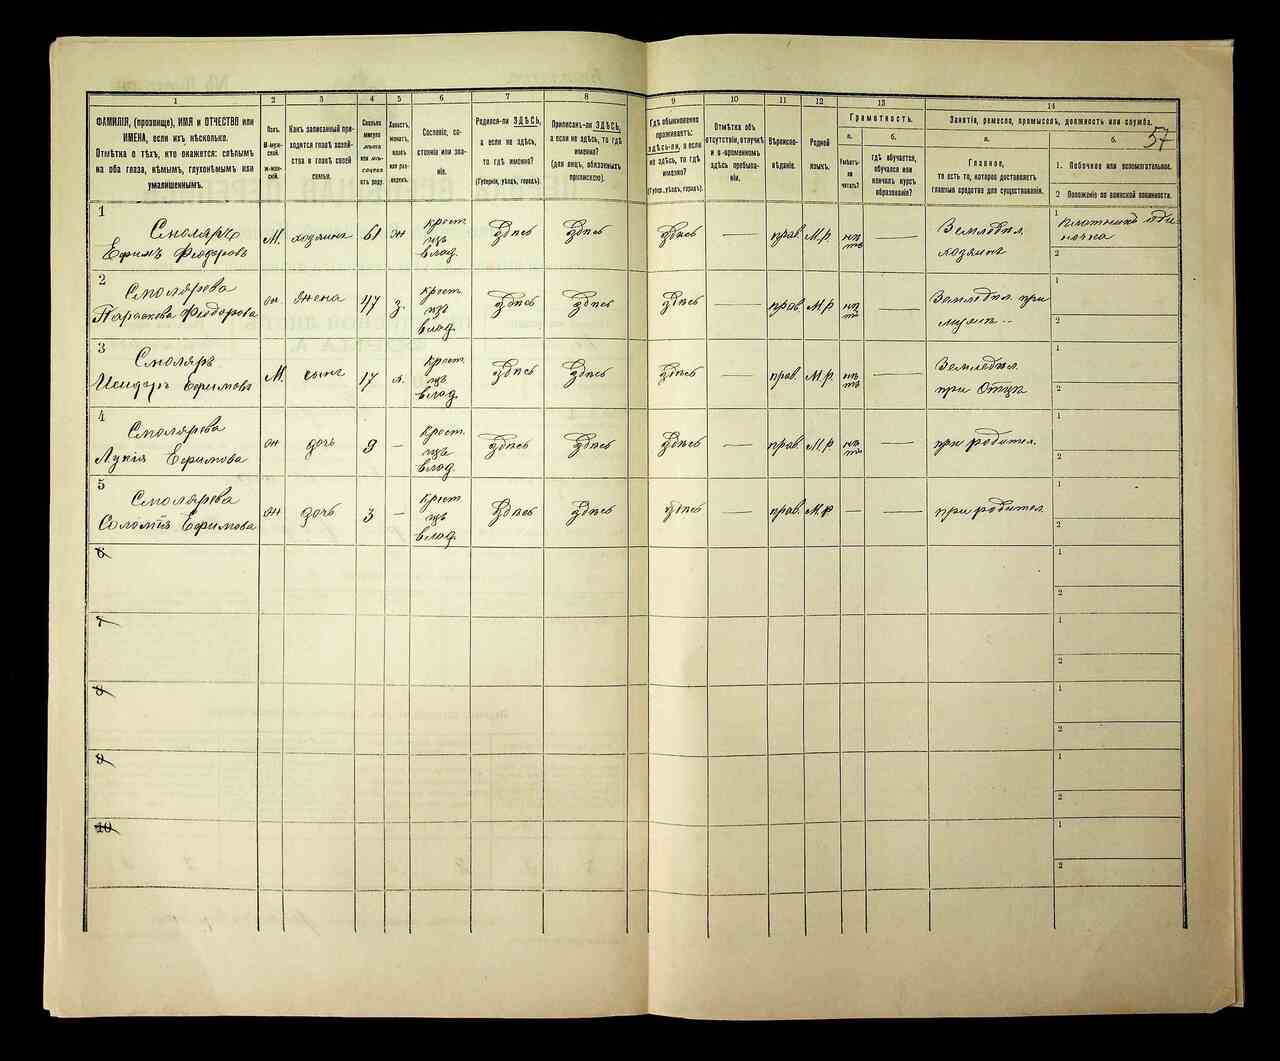 1
2
3
4
5
6
7
8
9
10
11
12
13
14
ФАМИЛІЯ, (прозвище), ИМЯ и ОТЧЕСТВО или
ИМЕНА, если ихъ нѣсколько.
Отмѣтка о тѣхъ, кто окажется: слѣпымъ
на оба глаза, нѣмымъ, глухонѣмымъ или
умалишеннымъ.
Полъ.
М-муж-
ской.
Ж-жен-
скій.
Какъ записанный при-
ходится главѣ хозяй-
ства и главѣ своей
семьи.
Сколько
минуло
лѣтъ
или мѣ-
сяцевъ
отъ роду.
Холостъ,
женатъ,
вдовъ
или раз-
веденъ.
Сословіе, со-
стояніе или зва-
ніе.
Родился-ли ЗДѢСЬ,
а если не здѣсь,
то гдѣ именно?
(Губернія, уѣздъ, городъ).
Приписанъ-ли ЗДѢСЬ,
а если не здѣсь, то гдѣ
именно?
(для лицъ, обязанныхъ
припискою).
Гдѣ обыкновенно
проживаетъ:
здѣсь-ли, а если
не здѣсь, то гдѣ
именно?
(Губерн., уѣздъ, городъ).
Отмѣтка объ
отсутствіи, отлучкѣ
и о временномъ
здѣсь пребыва-
ніи.
Вѣроиспо-
вѣданіе.
Родной
языкъ.
Грамотность.
а.
Умѣетъ-
ли
читать?
б.
гдѣ обучается,
обучался или
кончилъ курсъ
образованія?
Занятія, ремесло, промыселъ, должность или служба.
57
а.
Главное,
то есть то, которое доставляетъ
главныя средства для существованія.
б.
1. Побочное или вспомогательное.
2 Положеніе по воинской повинности.
1
Смоляръ
Ефимъ Феодоровъ
М. хозяинъ 61 ж
крест.
изъ
влад.
здѣсь здѣсь здѣсь — прав. М.р. нѣтъ —
Земледѣл.
хозяинъ
1 Плотникъ оди
ночка
2
2
Смолярева
Параскева Феодорова
ж. жена 47 з.
крест.
изъ
влад.
здѣсь здѣсь здѣсь — прав. М.р. нѣтъ —
Земледѣл. при
мужѣ
1
2
3
Смоляръ
Исидоръ Ефимовъ
М. сынъ 17 х.
крест.
изъ
влад.
здѣсь здѣсь здѣсь — прав. М.р. нѣтъ —
Земледѣл.
при Отцѣ
1
2
4
Смолярева
Лукія Ефимова
ж дочь 9 —
крест.
изъ
влад.
здѣсь здѣсь здѣсь — прав. М.р. нѣтъ —
при родител.
1
2
5
Смолярева
Соломія Ефимова
ж дочь 3 —
крест.
изъ
влад.
здѣсь здѣсь здѣсь — прав. М.р. — —
при родител.
1
2
6
1
2
7
1
2
8
1
2
9
1
2
10
1
2